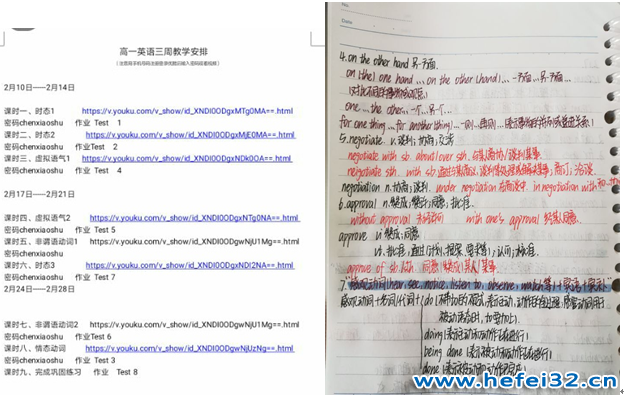 高一英语三周教学安排
2月10日——2月14日
课时一、时态1 https://v.youku.com/v_show/id_XNDI0ODgxMTg0MA==.html
密码chenxiaoshu 作业 Test 1
课时二、时态2 https://v.youku.com/v_show/id_XNDI0ODgxMjE0MA==.html
密码chenxiaoshu 作业Test 2
课时三、虚拟语气1 https://v.youku.com/v_show/id_XNDI0ODgxNDk0OA==.html
密码chenxiaoshu 作业 Test 4
2月17日——2月21日
课时四、虚拟语气2 https://v.youku.com/v_show/id_XNDI0ODgxNTg0NA==.html
密码chenxiaoshu 作业 Test 5
课时五、非谓语动词1 https://v.youku.com/v_show/id_XNDI0ODgwNjU1Mg==.html
密码chenxiaoshu
课时六、时态3 https://v.youku.com/v_show/id_XNDI0ODgxNDI2NA==.html
密码chenxiaoshu 作业 Test 7
2月24日——2月28日
课时七、非谓语动词2 https://v.youku.com/v_show/id_XNDI0ODgwNjU1Mg==.html
密码chenxiaoshu 作业Test 6
课时八、情态动词 https://v.youku.com/v_show/id_XNDI0ODgwNjUzNg==.html
密码chenxiaoshu 作业 Test 3
课时九、完成巩固练习 作业 Test 8
Date
4. on the other hand 另一方面
on (the) one hand... on the other (hand)... 一方面...另一方面...
one... the other... 一个...另一个...
for one thing... for another (thing)...
5. negotiate v. 谈判;协商;交涉
negotiate with sb. about/over sth. 与某人协商/谈判某事
negotiate sth. with sb.
negotiation n. 协商;谈判 under negotiation 在商谈中 in negotiation with
6. approval n. 赞成;赞许;同意;批准
without approval 未经许可 with one's approval 经某人同意
approve vi 赞成;同意
vt. 批准,通过
approve of sb./sth. 同意/赞成某人/某事
7. 感观动词(hear, see, notice, listen to, observe, watch等)+宾语+宾补
do
doing 表示
being done 表示
done 表示
www.hefei32.cn